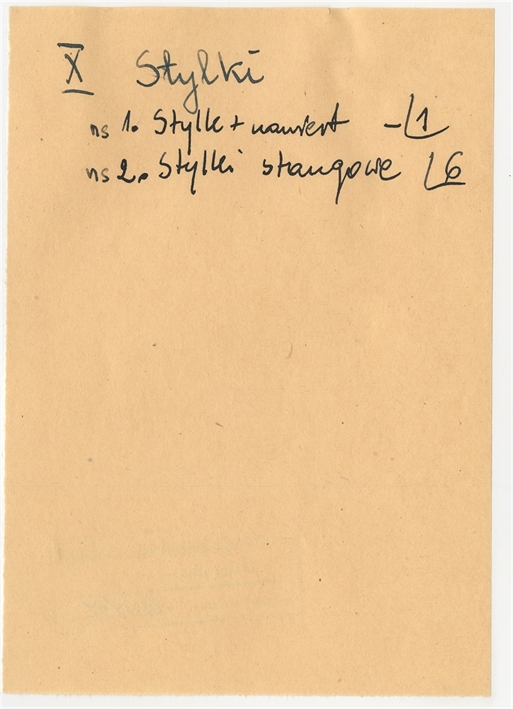 X Stylki
ns 1. Stylk + nawiert - 1
ns 2. Stylki stangowe 6